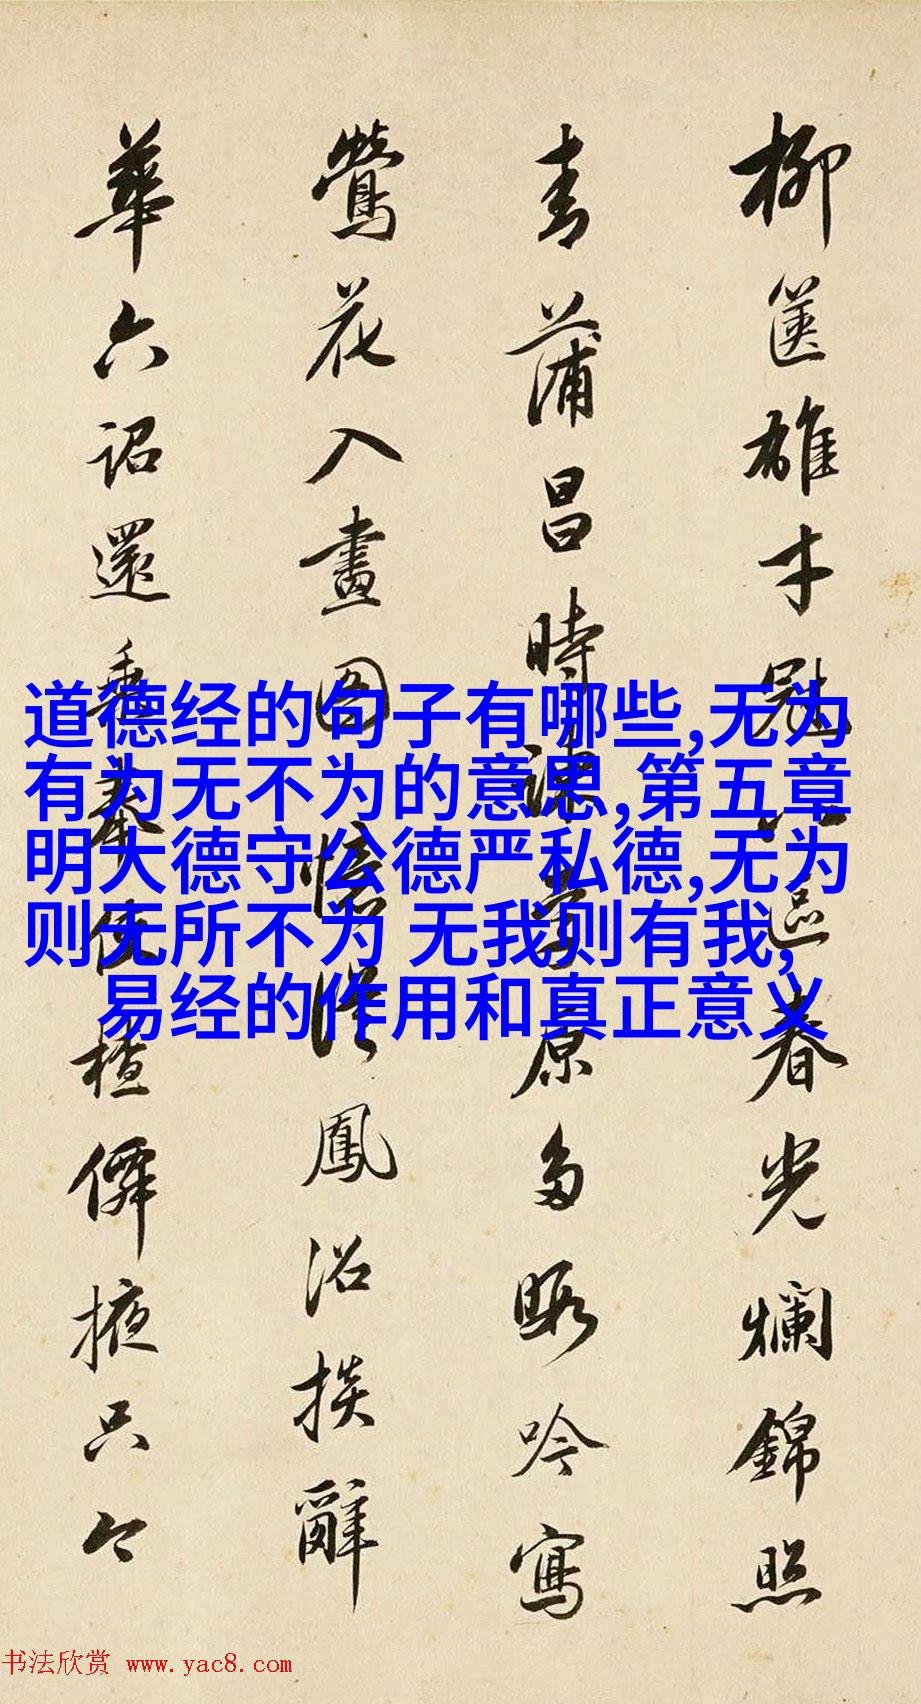 柳篋雄才冠八區春光爛錦照
青蒲昌時諫草原多暇吟寫
鶯花入畫圖 鳳沼掞辭
華六詔還乘奉使槎僊掖只今
道德经的句子有哪些,无为
有为无不为的意思,第五章
明大德守公德严私德,无为
则无所不为 无我则有我,
易经的作用和真正意义
书法欣赏 www.yac8.com